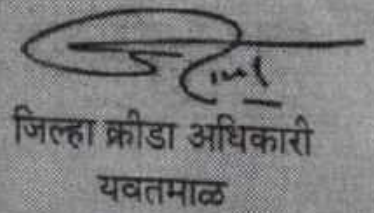 जिल्हा क्रीडा अधिकारी
यवतमाळ